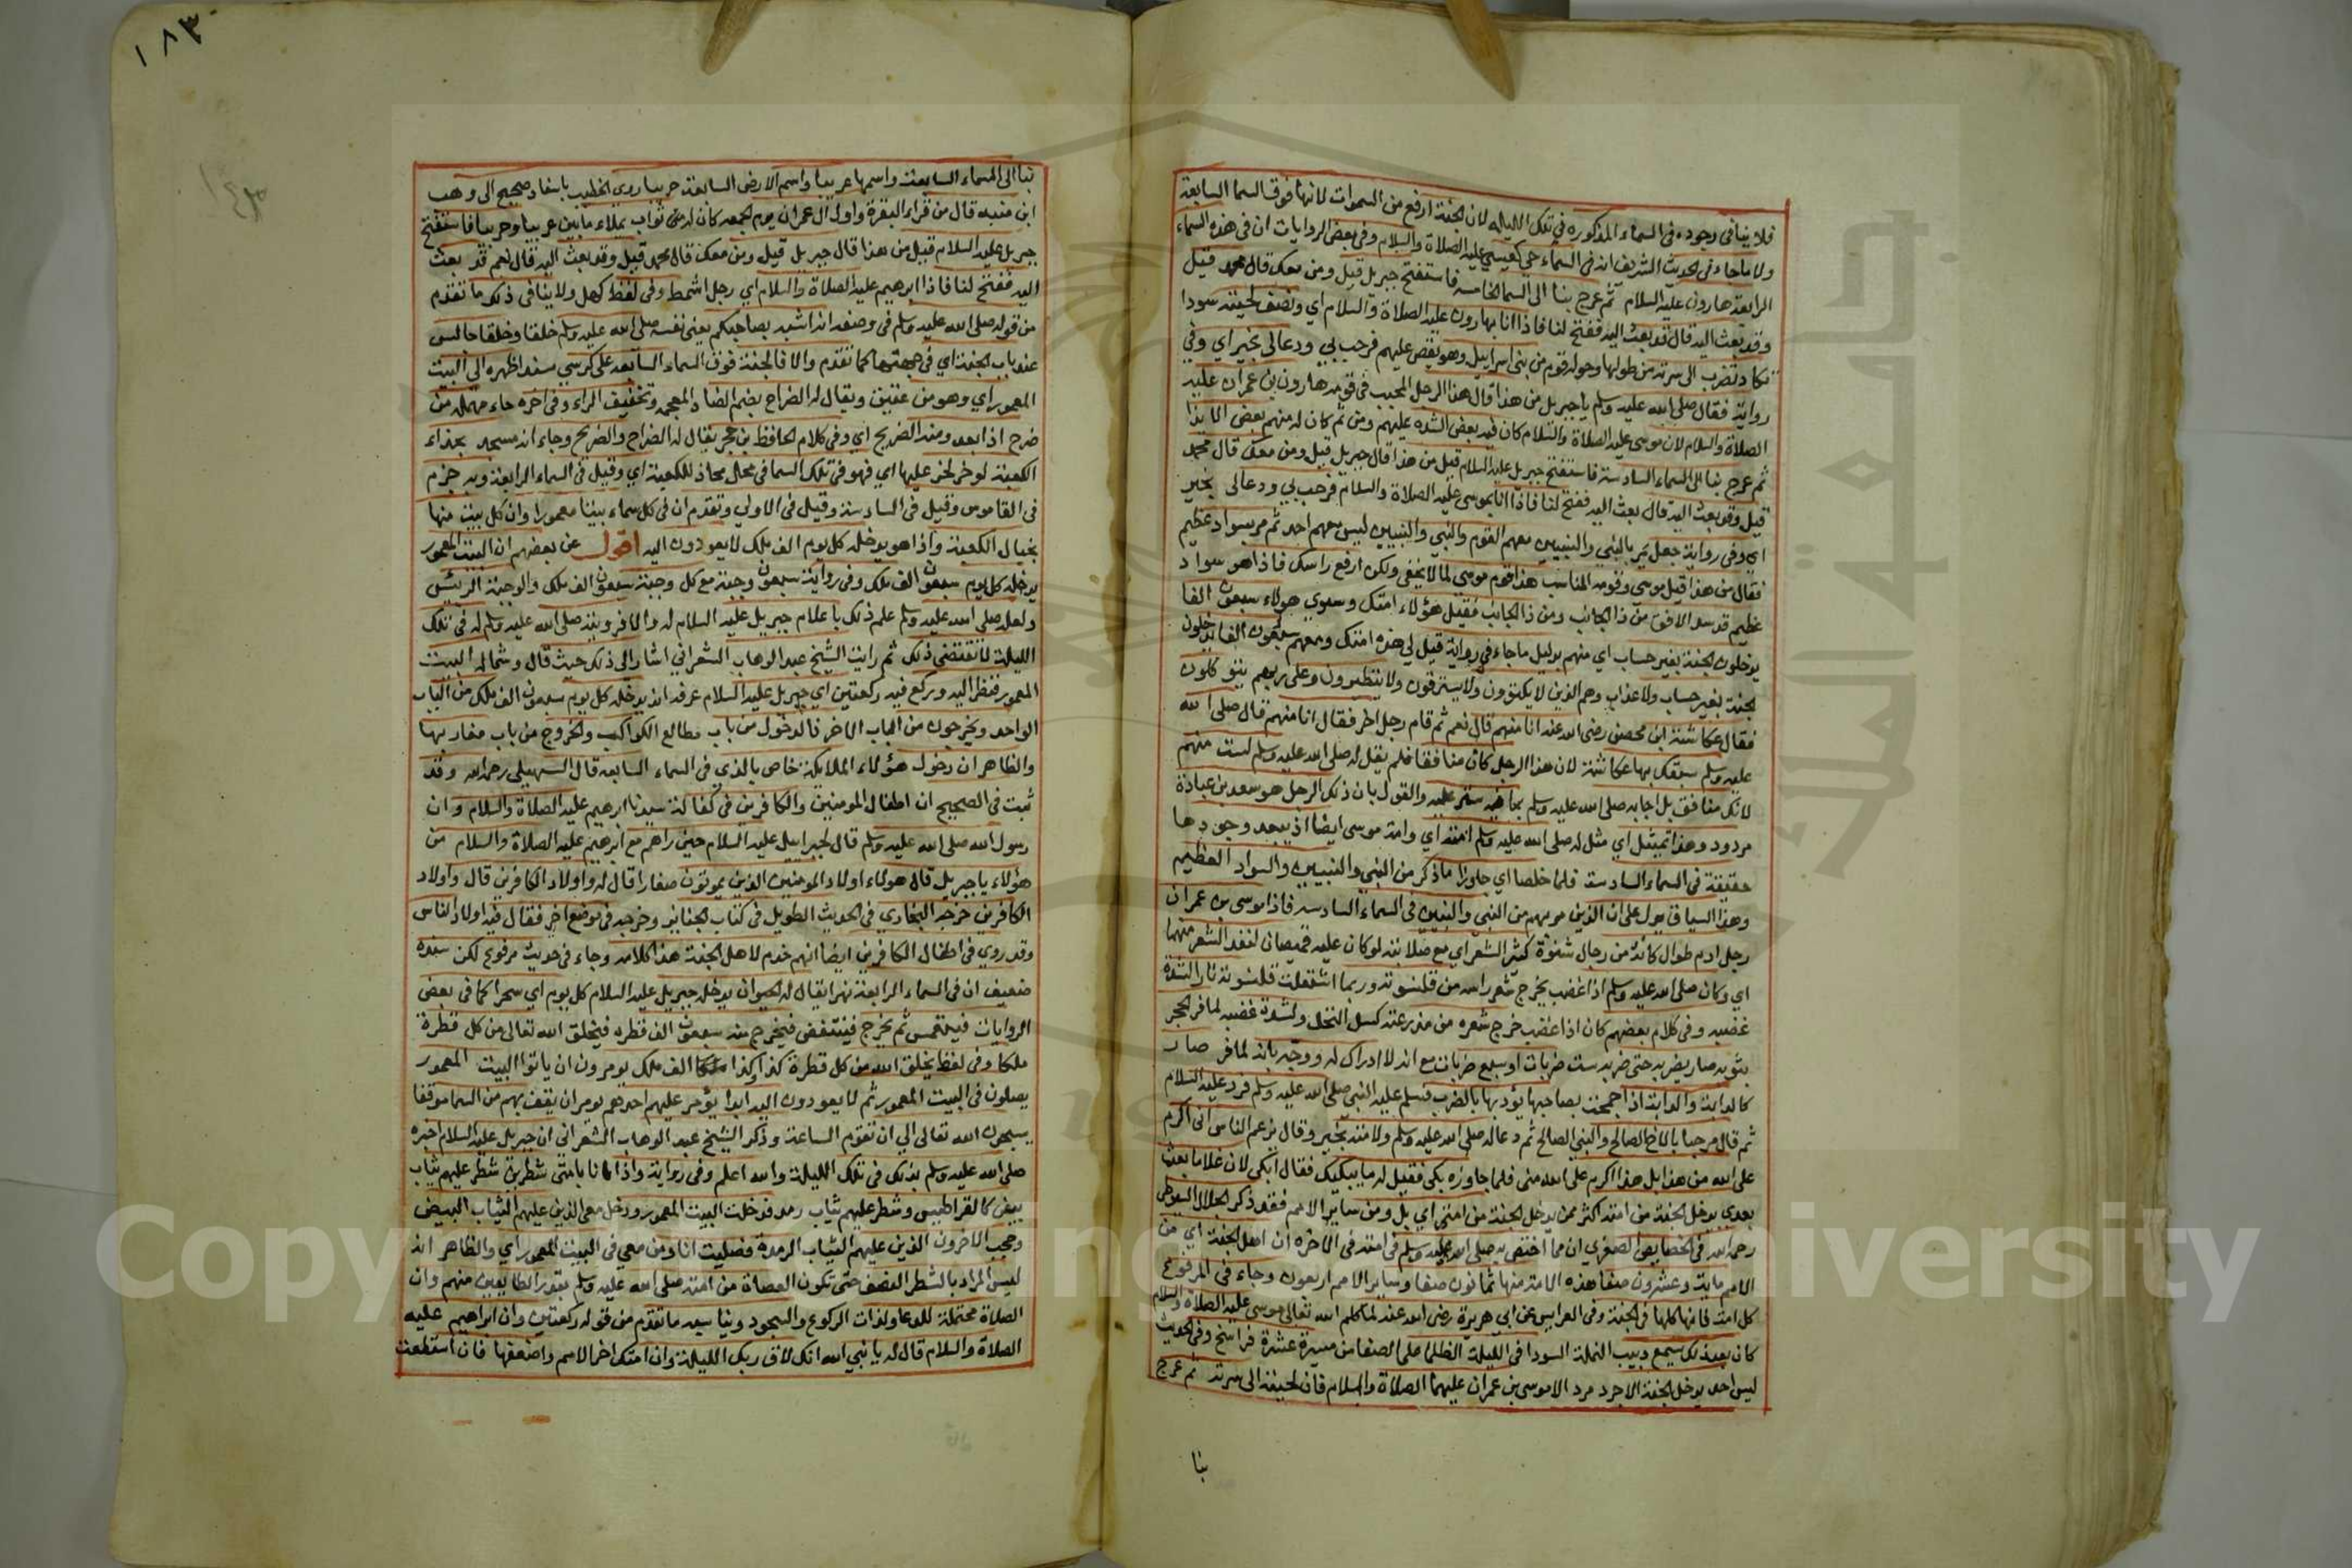 فلا ينافى وجوده فى السماء المذكوره في تلك الليلة لان الجنة ارفع من السموات لانها فوق السما السابعة
ولا ما جاء فى الحديث الشريف انه فى السماء حي كعيسي عليه الصلاة والسلام وفى بعض الروايات ان فى هذه السماء
الرابعة هارون عليه السلام ثم عرج بنا الى السما الخامسه فاستفتح جبريل قيل ومن معك قال محمد قيل
وقد بعث اليه قال قد بعث اليه ففتح لنا فاذا انا بهارون عليه الصلاة والسلام اي ونصف لحيته سودا
تكاد تضرب الى سرته من طولها وحوله قوم من بنى اسراييل وهو يقص عليهم فرحب بي ودعالى بخير اي وفي
رواية فقال صلى الله عليه وسلم يا جبريل من هذا قال هذا الرجل المحبب فى قومه هارون بن عمران عليه
الصلاة والسلام لان موسى عليه الصلاة والسلام كان فيه بعض الشده عليهم ومن ثم كان له منهم بعض الايذا
ثم عرج بنا الى السماء السادسة فاستفتح جبريل عليه السلام قيل من هذا قال جبريل قيل ومن معك قال محمد
قيل وقد بعث اليه قال بعث اليه ففتح لنا فاذا انا بموسى عليه الصلاة والسلام فرحب بي ودعالى بخير
اي وفى رواية جعل يمر بالنبي والنبيين معهم القوم والنبي والنبيين ليس معهم احد ثم مر بسواد عظيم
فقال من هذا قيل موسي وقومه المناسب هذا قوم موسي لما لا يخفى ولكن ارفع راسك فاذا هو سواد
عظيم قد سد الافق من ذا الجانب ومن ذا الجانب فقيل هؤلاء امتك وسوى هولاء سبعون الفا
يدخلون الجنة بغير حساب اي منهم بدليل ما جاء في رواية قيل لي هذه امتك ومعهم سبعون الفا يدخلون
الجنة بغير حساب ولا عذاب وهم الذين لا يكتوون ولا يسترقون ولا يتطيرون وعلى ربهم يتوكلون
فقال عكاشة ابن محصن رضى الله عنه انا منهم قال نعم ثم قام رجل اخر فقال انا منهم قال صلى الله
عليه وسلم سبقك بها عكاشة لان هذا الرجل كان منافقا فلم يقل له صلى الله عليه وسلم لست منهم
لانك منافق بل اجابه صلى الله عليه وسلم بما فيه ستر عليه والقول بان ذلك الرجل هو سعد بن عبادة
مردود وهذا تمثيل اي مثل له صلى الله عليه وسلم امته اي وامة موسى ايضا اذ يبعد وجودها
حقيقة فى السماء السادسة فلما خلصا اي جاوزا ما ذكر من النبي والنبيين والسواد العظيم
وهذا السياق يدل على ان الذين مر بهم من النبي والنبيين فى السماء السادسه فاذا موسى بن عمران
رجل ادم طوال كانه من رجال شنؤة كثير الشعر اي مع صلابته لو كان عليه قميصان لنفذ الشعر منهما
اي وكان صلى الله عليه وسلم اذا غضب يخرج شعر راسه من قلنسوته وربما اشتعلت قلنسوته نارا لشدة
غضبه وفى كلام بعضهم كان اذا غضب خرج شعره من مدرعته كسل النخل ولشدة غضبه لما فر الحجر
بثوبه صار يضربه حتى ضربه ست ضربات او سبع ضربات مع انه لا ادراك له ووجه بانه لما فر صار
كالدابة والدابة اذا جمحت بصاحبها يؤدبها بالضرب فسلم عليه النبي صلى الله عليه وسلم فرد عليه السلام
ثم قال مرحبا بالاخ الصالح والنبي الصالح ثم دعا له صلى الله عليه وسلم ولامته بخير وقال يزعم الناس انى اكرم
على الله من هذا بل هذا اكرم على الله منى فلما جاوزه بكى فقيل له ما يبكيك فقال ابكى لان غلاما بعث
بعدى يدخل الجنة من امته اكثر ممن يدخل الجنة من امتى اي بل ومن ساير الامم فقد ذكر الجلال السيوطي
رحمه الله فى الخصايص الصغري ان مما اختص به صلى الله عليه وسلم فى امته فى الاخره ان اهل الجنة اي من
الامم ماية وعشرون صفا هذه الامة منها ثمانون صفا وساير الامم اربعون وجاء فى المرفوع
كل امة فانها كلها فى الجنة وفى العرايس عن ابي هريرة رضى الله عنه لما كلم الله تعالى موسى عليه الصلاة والسلام
كان بعد ذلك يسمع دبيب النملة السودا فى الليلة الظلما على الصفا من مسيرة عشرة فراسخ وفى الحديث
ليس احد يدخل الجنة الا جرد مرد الا موسى بن عمران عليهما الصلاة والسلام فان لحيته الى سرته ثم عرج
بنا
١٨٣
١٤٣
بنا الى السماء السابعة واسمها عريبا واسم الارض السابعة حريبا روى الخطيب باسناد صحيح الى وهب
ابن منبه قال من قراء البقرة واول ال عمران يوم الجمعه كان له من ثواب يملاء ما بين عريبا وحريبا فاستفتح
جبريل عليه السلام قيل من هذا قال جبريل قيل ومن معك قال محمد قيل وقد بعث اليه قال نعم قد بعث
اليه ففتح لنا فاذا ابرهيم عليه الصلاة والسلام اي رجل اشمط وفى لفظ كهل ولا ينافى ذلك ما تقدم
من قوله صلى الله عليه وسلم فى وصفه انه اشبه بصاحبكم يعنى نفسه صلى الله عليه وسلم خلقا وخلقا جالس
عند باب الجنة اي فى جهتها كما تقدم والا فالجنة فوق السماء السابعه على كرسي مسند اظهره الى البيت
المعمور اي وهو من عقيق ويقال له الضراح بضم الضاد المعجمه وتخفيف الراء وفى اخره حاء مهملة من
ضرح اذا بعد ومنه الضريح اي وفى كلام الحافظ بن حجر يقال له الضراح والضريح وجاء انه مسجد بحذاء
الكعبة لو خر لخر عليها اي فهو فى تلك السما فى محل محاذ للكعبة اي وقيل فى السماء الرابعة وبه جزم
فى القاموس وقيل فى السادسة وقيل فى الاولي وتقدم ان فى كل سماء بيتا معمورا وان كل بيت منها
بحيال الكعبة واذا هو يدخله كل يوم الف ملك لا يعودون اليه اقول عن بعضهم ان البيت المعمور
يدخله كل يوم سبعون الف ملك وفى رواية سبعون وجبة مع كل وجبة سبعون الف ملك والوجبة الرئيس
ولعله صلى الله عليه وسلم علم ذلك باعلام جبريل عليه السلام له والا فرويته صلى الله عليه وسلم له فى تلك
الليلة لا تقتضى ذلك ثم رايت الشيخ عبد الوهاب الشعرانى اشار الى ذلك حيث قال وشماله البيت
المعمور فنظر اليه وركع فيه ركعتين اي جبريل عليه السلام عرفه انه يدخله كل يوم سبعون الف ملك من الباب
الواحد ويخرجون من الباب الاخر فالدخول من باب مطالع الكواكب والخروج من باب مغاربها
والظاهر ان دخول هؤلاء الملايكة خاص بالذي فى السماء السابعه قال السهيلى رحمه الله وقد
ثبت فى الصحيح ان اطفال المومنين والكافرين فى كفالة سيدنا ابرهيم عليه الصلاة والسلام وان
رسول الله صلى الله عليه وسلم قال لجبراييل عليه السلام حين راهم مع ابرهيم عليه الصلاة والسلام من
هؤلاء يا جبريل قال هولاء اولاد المومنين الذين يموتون صغارا قال له واولاد الكافرين قال واولاد
الكافرين خرجه البخاري فى الحديث الطويل فى كتاب الجنايز وخرجه فى موضع اخر فقال فيه اولاد الناس
وقد روي فى اطفال الكافرين ايضا انهم خدم لاهل الجنة هذا كلامه وجاء فى حديث مرفوع لكن سنده
ضعيف ان فى السماء الرابعة نهرا يقال له الحيوان يدخله جبريل عليه السلام كل يوم اي سحرا كما فى بعض
الروايات فينغمس ثم يخرج فينتفض فيخرج منه سبعون الف قطره فيخلق الله تعالى من كل قطرة
ملكا وفى لفظ يخلق الله من كل قطرة كذا وكذا الف ملك يومرون ان ياتوا البيت المعمور
يصلون فى البيت المعمور ثم لا يعودون اليه ابدا يؤمر عليهم احدهم يومر ان يقف بهم من السما موقفا
يسبحون الله تعالى الي ان تقوم الساعة وذكر الشيخ عبد الوهاب الشعرانى ان جبريل عليه السلام اخبره
صلى الله عليه وسلم بذلك فى تلك الليلة والله اعلم وفى رواية واذا انا بامتى شطرين شطر عليهم ثياب
بيض كالقراطيس وشطر عليهم ثياب رمد فدخلت البيت المعمور ودخل معى الذين عليهم الثياب البيض
وحجب الاخرون الذين عليهم الثياب الرمدة فصليت انا ومن معي فى البيت المعمور اي والظاهر انه
ليس المراد بالشطر النصف حتى تكون العصاة من امته صلى الله عليه وسلم بقدر الطايعين منهم وان
الصلاة محتملة للدعا ولذات الركوع والسجود ويناسبه ما تقدم من قوله ركعتين وان ابراهيم عليه
الصلاة والسلام قال له يا نبي الله انك لاق ربك الليلة وان امتك اخر الامم واضعفها فان استطعت